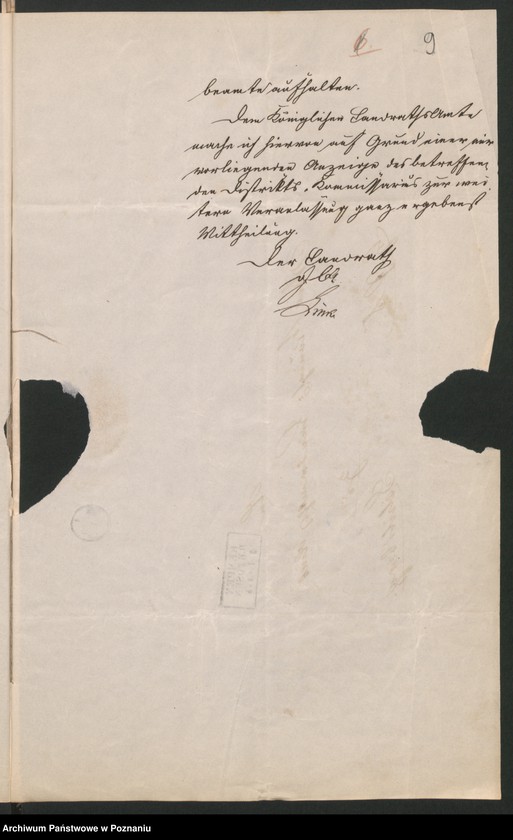 6. 9
beamte aufhalten.
Dem Königlichen Landrathsamte
mache ich hiervon auf Grund einer mir
vorliegenden Anzeige des betreffen-
den Distrikts-Kommissarius zur wei-
tern Veranlassung ganz ergebenst
Mittheilung.
Der Landrath
Archiwum Państwowe w Poznaniu